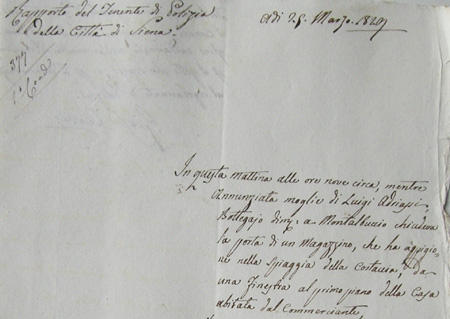 Rapporto del Tenente di Polizia
della Città di Siena.
Adì 25. Marzo. 1829
In questa mattina alle ore nove circa, mentre
Annunziata moglie di Luigi
Bottegajo dim: a Montalbuccio chiudeva
la porta di un Magazzino, che ha a pigio=
ne nella Spiaggia della Costaccia, da
una Finestra al primo piano della Casa
abitata dal Commerciante,